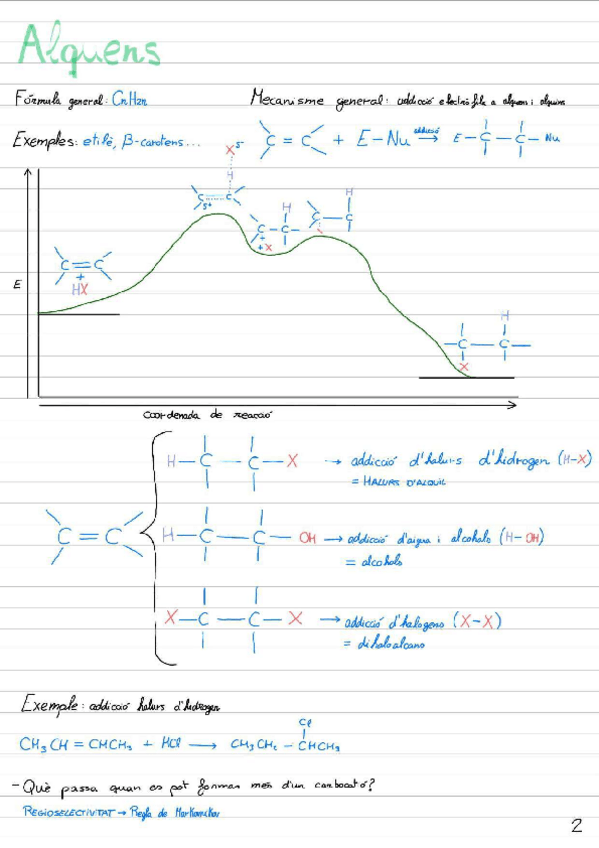 Alquens
Fórmula general: CnH2n
Mecanisme general: addicció electròfila a alquens i alquins
Exemples: etilè, β-carotens...
C = C + E-Nu addició → E-C-C-Nu
X δ-
H
C C
δ+
H
C-C
+
+ X
H
C-C
C=C
+
HX
E
H
-C-C-
X
Coordenada de reacció
H-C-C-X → addicció d'halurs d'hidrogen (H-X)
= HALURS D'ALQUIL
C=C
H-C-C-OH → addicció d'aigua i alcohols (H-OH)
= alcohols
X-C-C-X → addicció d'halogens (X-X)
= dihaloalcano
Exemple: addicció halurs d'hidrogen
Cl
CH3CH=CHCH3 + HCl → CH3CH2-CHCH3
- Què passa quan es pot formar més d'un carbocatió?
REGIOSELECTIVITAT → Regla de Markovnikov
2